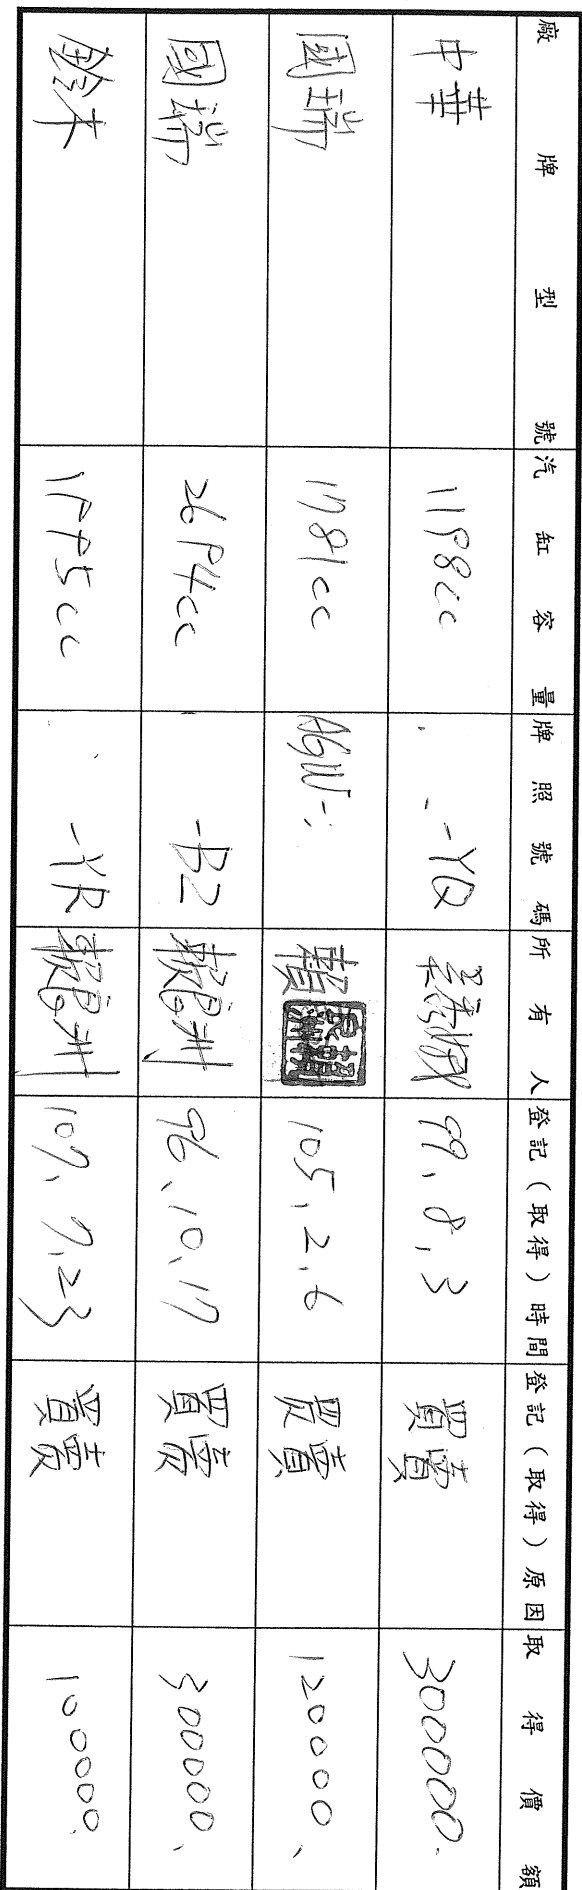 廠牌型號 汽缸容量 牌照號碼 所有人 登記（取得）時間 登記（取得）原因 取得價額
中華 1198cc -YQ 99、8、3 買賣 300000
國瑞 1781cc AGW- 賴 105、2、6 買賣 120000
國瑞 2694cc -BZ 賴良洲 96、10、17 買賣 300000
鈴木 1995cc -YR 賴良洲 107、7、23 買賣 100000